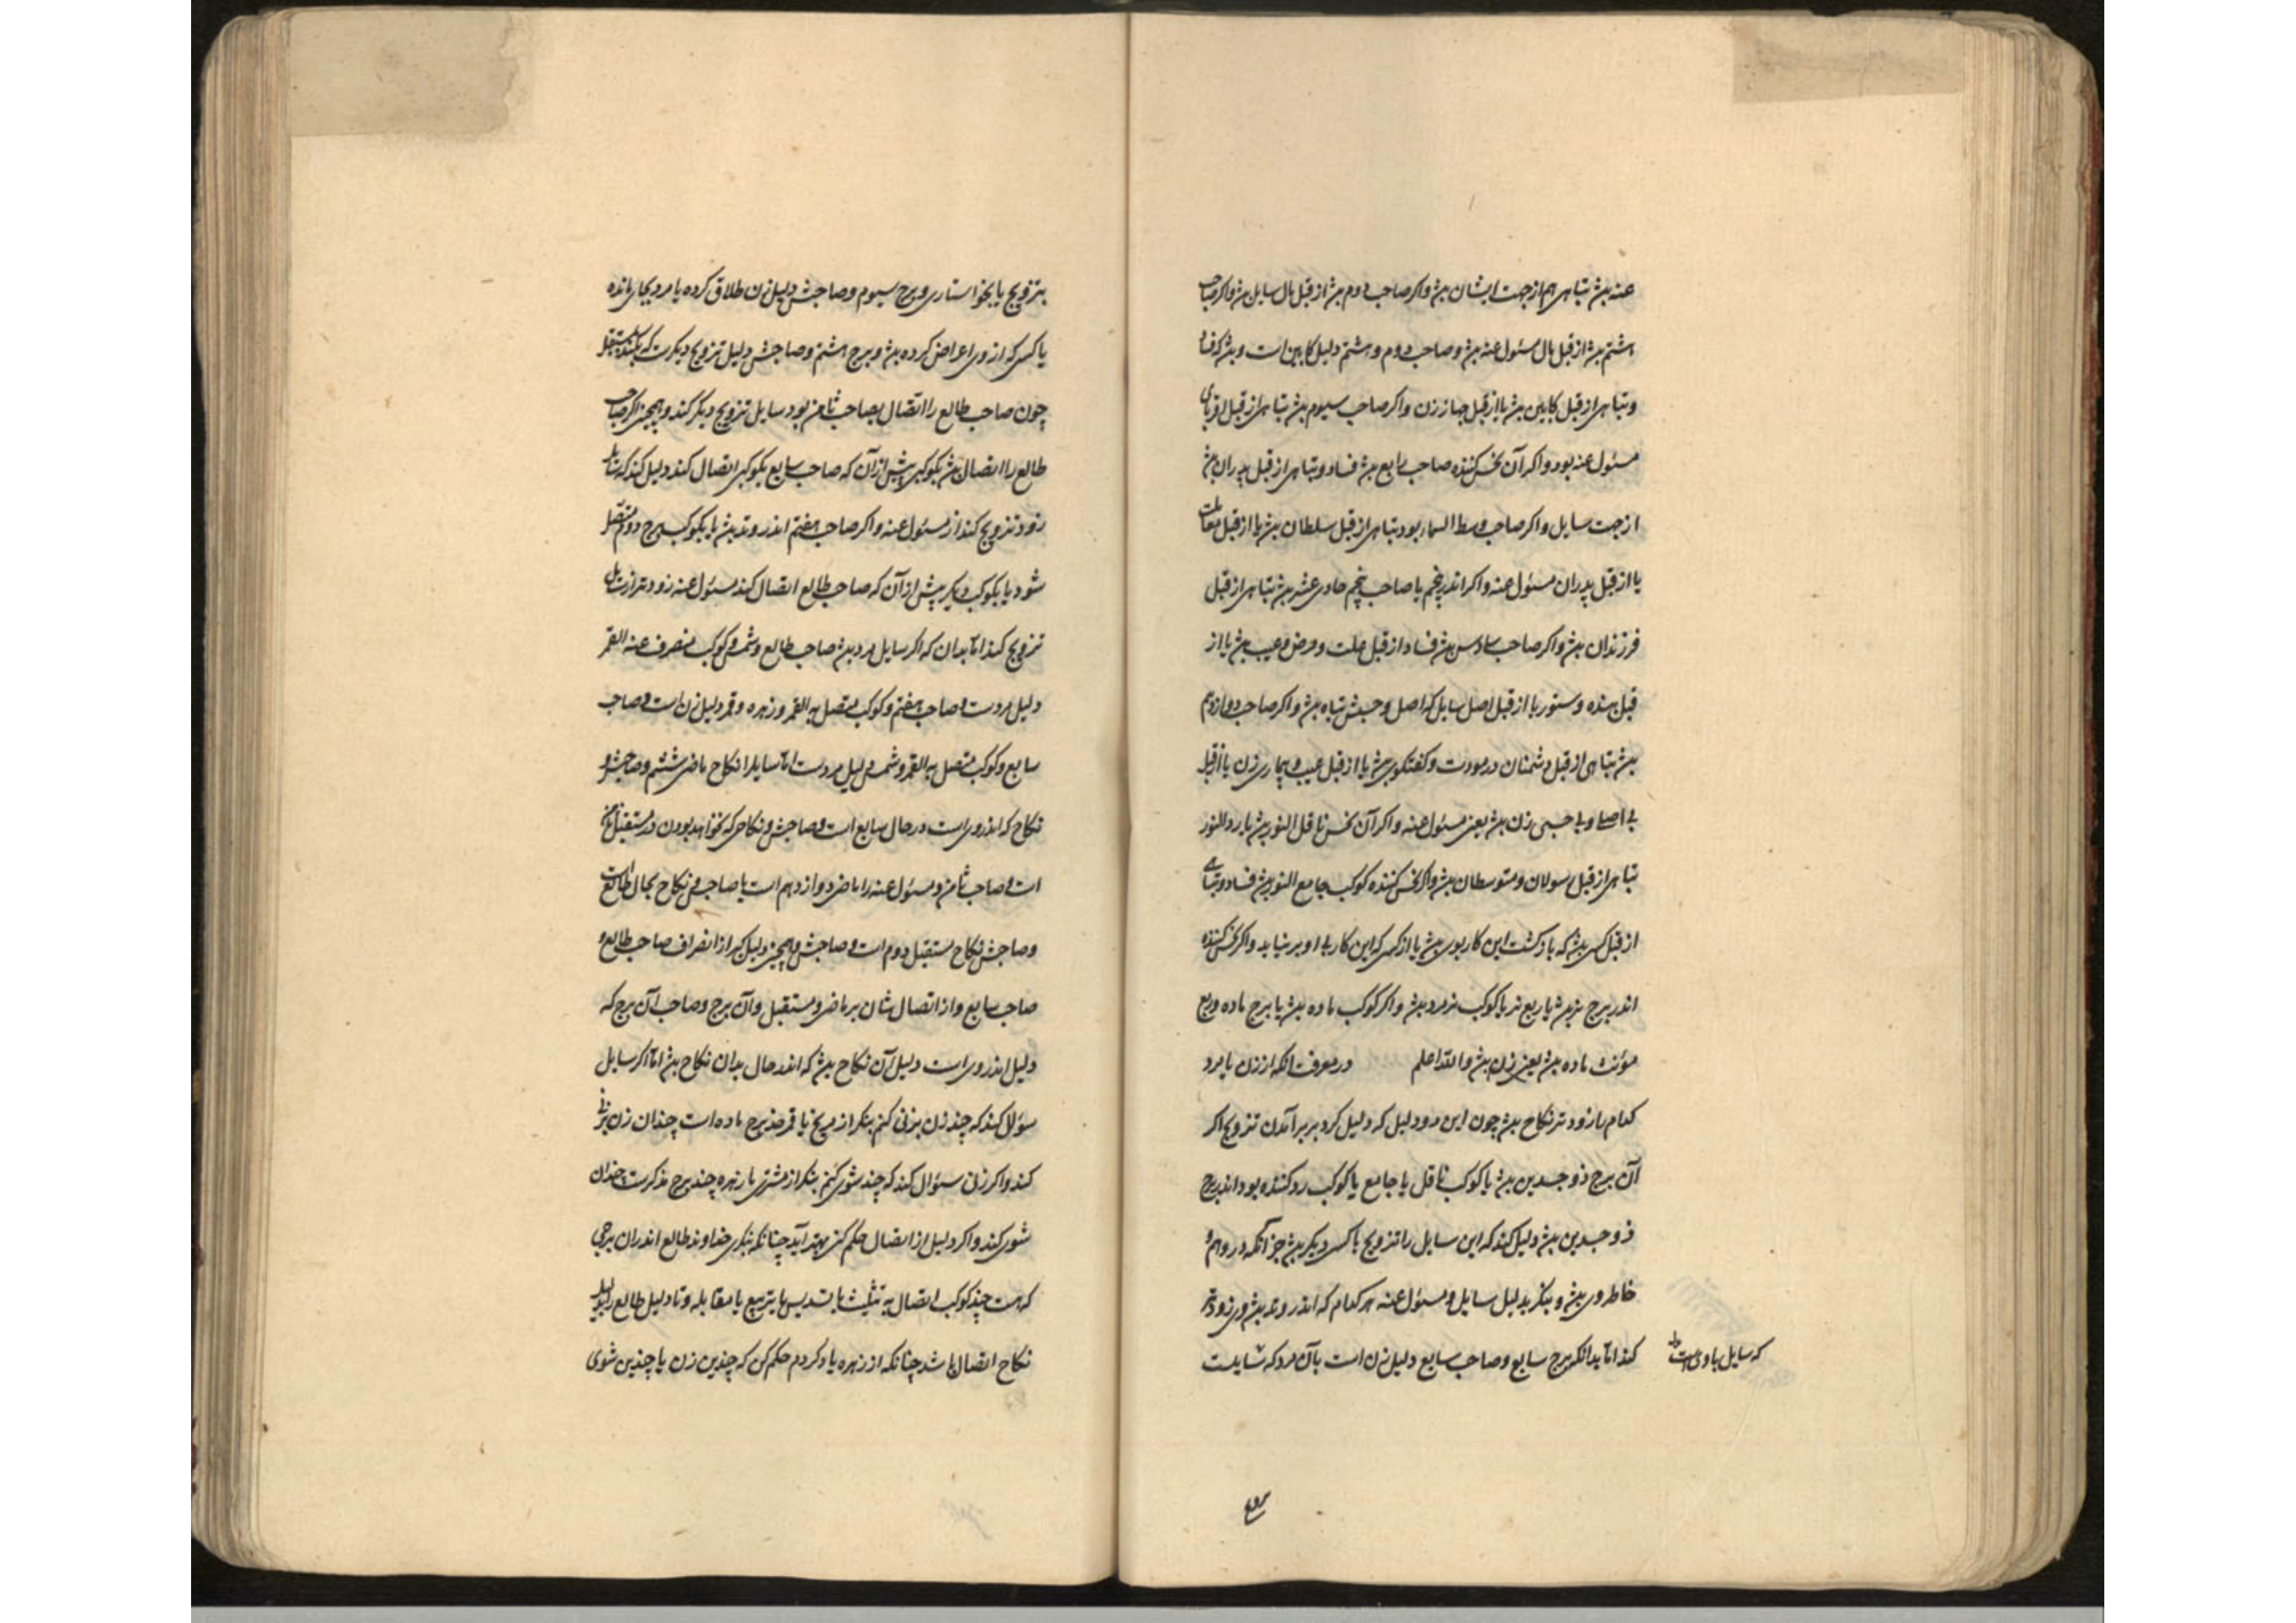 عنه بش تباهی هم از جهت ایشان بش و اکر صاحب دوم بش از قبل مال سایل بش و اکر صاحب
هشتم بش از قبل مال مسئول عنه بش و صاحب دوم و هشتم دلیل کابین است و بش که فساد
و تباهی از قبل کابین بش یا از قبل جهاز زن و اکر صاحب سیوم بش تباهی از قبل اقربای
مسئول عنه بود و اکر آن نحس کننده صاحب رابع بش فساد و تباهی از قبل پدران بش
از جهت سایل و اکر صاحب وسط السماء بود تباهی از قبل سلطان بش یا از قبل
یا از قبل پدران مسئول عنه و اکر اندر پنجم یا صاحب پنجم حادی عشر بش تباهی از قبل
فرزندان بش و اکر صاحب سادس بش فساد از قبل علت و مرض و عیب بش یا از
قبل بنده و ستور یا از قبل اصل سایل که اصل و حسبش تباه بش و اکر صاحب دوازدهم
بش تباهی از قبل دشمنان در مودت و کفتکو بش یا از قبل عیب و بیماری زن یا از قبل
بی اصلی و بی حسبی زن بش یعنی مسئول عنه و اکر آن نحس ناقل النور بش یا رد النور
تباهی از قبل رسولان و متوسطان بش و اکر نحس کننده کوکب جامع النور بش فساد و تباهی
از قبل کسی بش که بازکشت این کار بوی بش یا از کسی که این کار بی او بر نیاید و اکر نحس کننده
اندر برج نر بش یا ربع نر یا کوکب نر مرد بش و اکر کوکب ماده بش یا برج ماده و ربع
مؤنث ماده بش یعنی زن بش والله اعلم در معرفت انکه از زن یا مرد
کدام را زودتر نکاح بش چون این دو دلیل که دلیل کرد بر بر آمدن تزویج اکر
آن برج ذو جسدین بش یا کوکب ناقل یا جامع یا کوکب رد کننده بود اندر برج
ذو جسدین بش دلیل کند که این سایل را تزویج با کسی دیکر بش جز آنکه در وهم و
خاطر وی بش و بنکر بدلیل سایل و مسئول عنه هر کدام که اندر وتد بش وی زودتر
کند اما بدانکه برج سابع و صاحب سابع دلیل زن است یا آن مرد که شایلست
که سایل با وی است
بتزویج یا بخواستاری و برج سیوم و صاحبش دلیل زن طلاق کرده یا مرد بجای مانده
یا کسی که از وی اعراض کرده بش و برج هشتم و صاحبش دلیل تزویج دیکرست که
چون صاحب طالع را اتصال بصاحب ثامن بود سایل تزویج دیکر کند و همچنین اکر صاحب
طالع را اتصال بش بکوکبی پیش از آن که صاحب سابع بکوکبی اتصال کند دلیل کند که سایل
زود تزویج کند از مسئول عنه و اکر صاحب هفتم اندر وتد بش یا بکوکب برج دوم متصل
شود یا بکوکب دیکر پیش از آن که صاحب طالع اتصال کند مسئول عنه زودتر از سایل
تزویج کند اما بدان که اکر سایل مرد بش صاحب طالع و شمس و کوکب منصرف عنه القمر
دلیل مردست و صاحب هفتم و کوکب متصل به القمر و زهره و قمر دلیل زن است و صاحب
سابع و کوکب متصل به القمر و شمس دلیل مردست اما سایل را نکاح ماضی ششم و صاحبش و
نکاح که اندرویست در حال سابع است و صاحبش و نکاحی که خواهد بودن در مستقبل ثامن
است و صاحب ثامن و مسئول عنه را ماضی دوازدهم است با صاحب وی نکاح بحال طالع است
و صاحبش نکاح مستقبل دوم است و صاحبش و همچنین دلیل کیر از انصراف صاحب طالع و
صاحب سابع و از اتصال شان بر ماضی و مستقبل و آن برج و صاحب آن برج که
دلیل اندرویست دلیل آن نکاح بش که اندر حال بدان نکاح بش اما اکر سایل
سؤال کند که چند زن بزنی کنم بنکر از مریخ تا قمر چند برج ماده است چندان زن بزنی
کند و اکر زن سئوال کند که چند شوی کنم بنکر از مشتری تا زهره چند برج مذکرست چندان
شوی کند و اکر دلیل از اتصال حکم کنی بهتر آید چنانکه بنکری خداوند طالع اندران برجی
که هست چند کوکب اتصال به تثلیث یا تسدیس یا تربیع یا مقابله و تا دلیل طالع را بدلیل
نکاح اتصال باشد چنانکه از زهره یاد کردم حکم کن که چندین زن یا چندین شوی